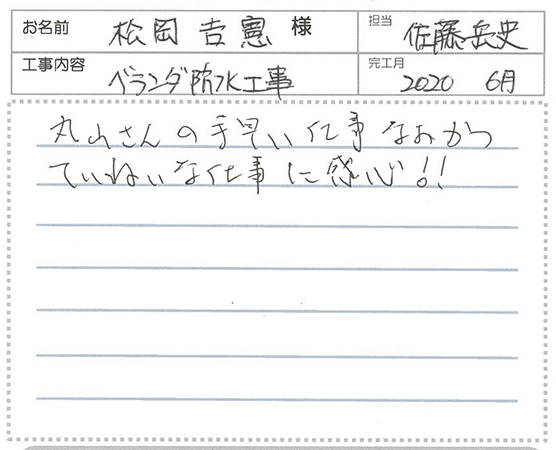 お名前 松岡 吉憲 様 担当 佐藤岳史
工事内容 ベランダ防水工事 完工月 2020 6月
丸山さんの手早い仕事なおかつ
ていねいな仕事に感心!!